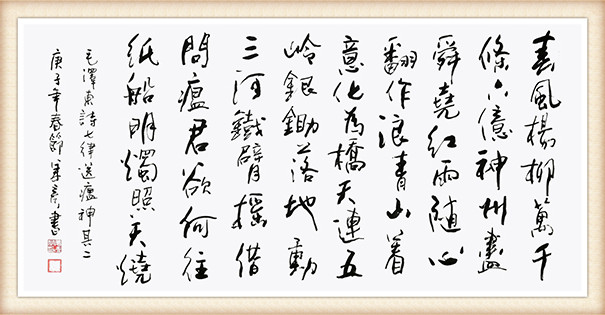 春風楊柳萬千
條六億神州盡
舜堯紅雨隨心
翻作浪青山着
意化為橋天連五
岭銀鋤落地動
三河鐵臂摇借
問瘟君欲何往
纸船明燭照天燒
毛澤東詩七律送瘟神其二
庚子年春節書